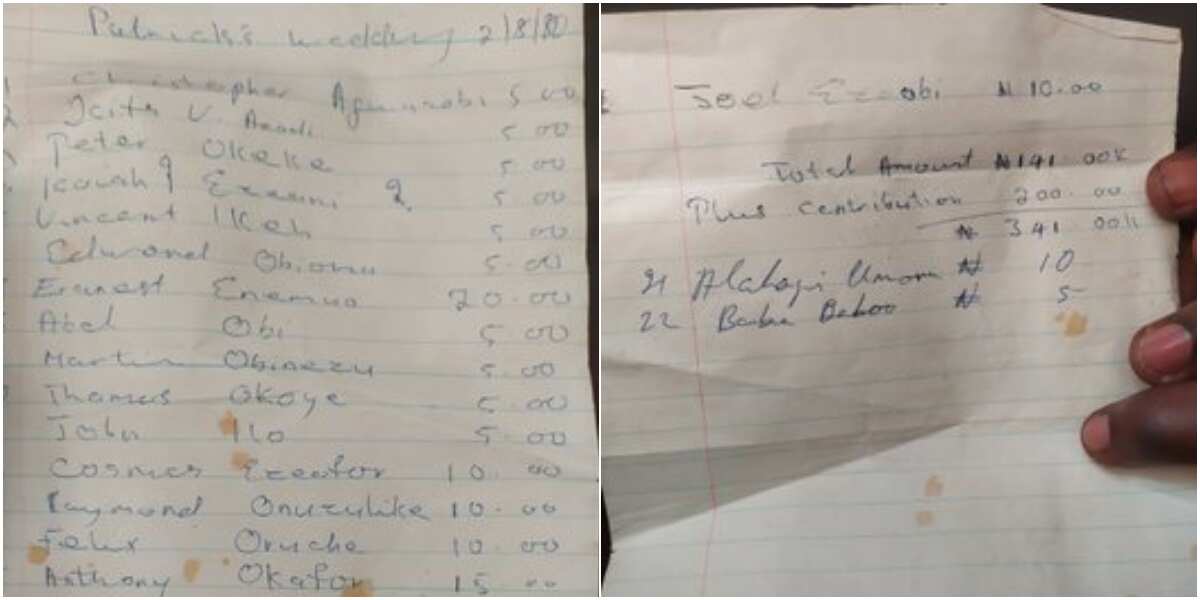 Patrick's wedding 2/8/80
1 Christopher 5 00
2 Keith U. 5 00
Peter Okeke 5.00
Ezeani 2. 5 00
Vincent Ikeh 5 00
Edwond Obionu 5.00
Ernest Enemuo 20.00
Abel Obi 5 00
Martin Obinezu 5.00
Thomas Okoye 5.00
John Ilo 5 00
Cosmas Ezeafor 10.00
Raymond Onuzulike 10.00
Felix Oruche 10.00
Anthony Okafor 15 00
Joel obi ₦ 10.00
Total Amount ₦141.00k
Plus contribution 200.00
₦ 341 00k
21 Alahaji Umoru ₦ 10
22 Baba ₦ 5